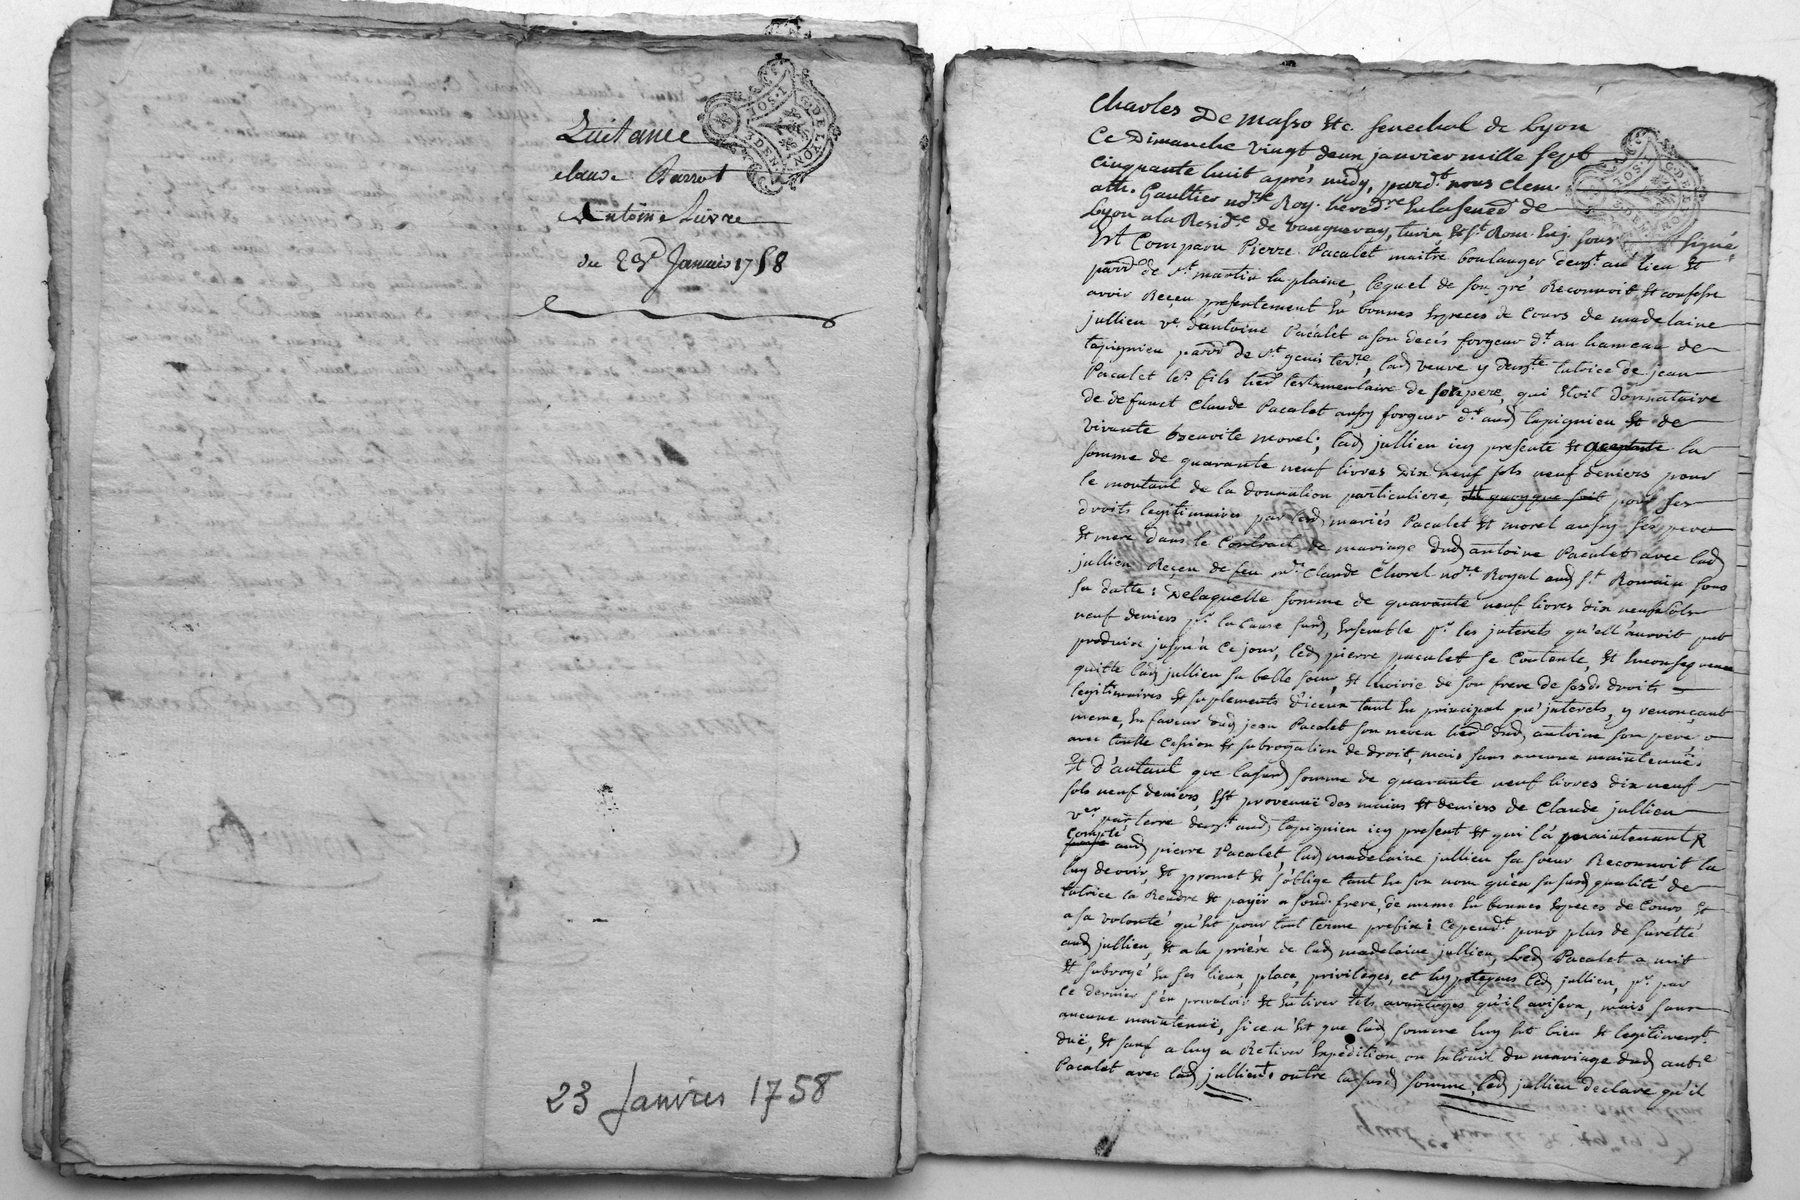 Quitance
claude Barrot
Antoine Lievre
du 23e Janvier 1758
23 Janvier 1758
G. DE LYON
1. SOL
DEN
Charles De Masso &tc. senechal de lyon
Ce Dimanche vingt deux janvier mille sept
cinquante huit aprés midy, pardt. nous clem
Gaultier nore. Roy. heredre. en la sened. de
lyon a la Residce. de vaugneray, turin et st. Rom. en j. sous signé
Est Comparu Pierre Pacalet maitre boulanger demt. au lieu et
parre de st. martin la plaine, lequel de son gré Reconnoit et confesse
avoir Reçeu presentement en bonnes especes de cours de madelaine
jullien ve. d'antoine Pacalet a son decés forgeur dt. au hameau de
tapignieu parre de st. genis terre, lad veuve y demte. tutrice de jean
Pacalet ler. fils herer testamentaire de son pere, qui etoit donnataire
de defunct Claude Pacalet aussy forgeur dt. aud tapignieu et de
vivante benoite morel; lad jullien icy presente et acceptante la
somme de quarante neuf livres dix neuf sols neuf deniers pour
le montant de la donnation particuliere, et quoyque soit pour ses
droits legitimaires par lesd mariés Pacalet et morel aussy ses pere
et mere dans le Contract de mariage dud antoine Pacalet avec lad
jullien Reçeu de feu me. Claude Chorel nore. Royal aud st. Romain sous
sa datte: Delaquelle somme de quarante neuf livres dix neuf sols
neuf deniers pr. la cause susd, ensemble pr. les interets qu'ell'auroit put
produire jusqu'a ce jour, led pierre pacalet se Contente, et en consequence
quitte lad jullien sa belle soeur, et l'hoirie de son frere de sesd. droits
legitimaires et suplements d'iceux tant en principal qu'interets, y renonçant
meme en faveur dud jean Pacalet son neveu herer dud antoine son pere
avec toutte Cession et subrogation de droit, mais sans aucune maintenuë:
Et d'autant que lasusd somme de quarante neuf livres dix neuf
sols neuf deniers, est provenuë des mains et deniers de Claude jullien
ver par terre demt. aud tapignieu icy present et qui l'a maintenant
compté
aud pierre Pacalet, lad madelaine jullien sa soeur Reconnoit la
luy devoir, et promet et s'oblige tant en son nom qu'en sa susd qualité de
tutrice la Rendre et payer a sond. frere, de meme en bonnes especes de Cours, et
a sa volonté qu'est pour tout terme prefix: Cependt. pour plus de sureté
aud jullien, et a la priere de lad madelaine jullien, Led Pacalet a mit
et subrogé en ses lieux, place, privileges, et hypoteques led jullien, pr. par
ce dernier s'en prevaloir et en tirer tels avantages qu'il avisera, mais sans
aucune maintenuë, si ce n'est que lad somme luy est bien et legitimemt.
duë, et sauf a luy a Retirer Expedition ou extrait du mariage dud ante
Pacalet avec lad jullient. outre la susd somme, led jullien declare qu'il